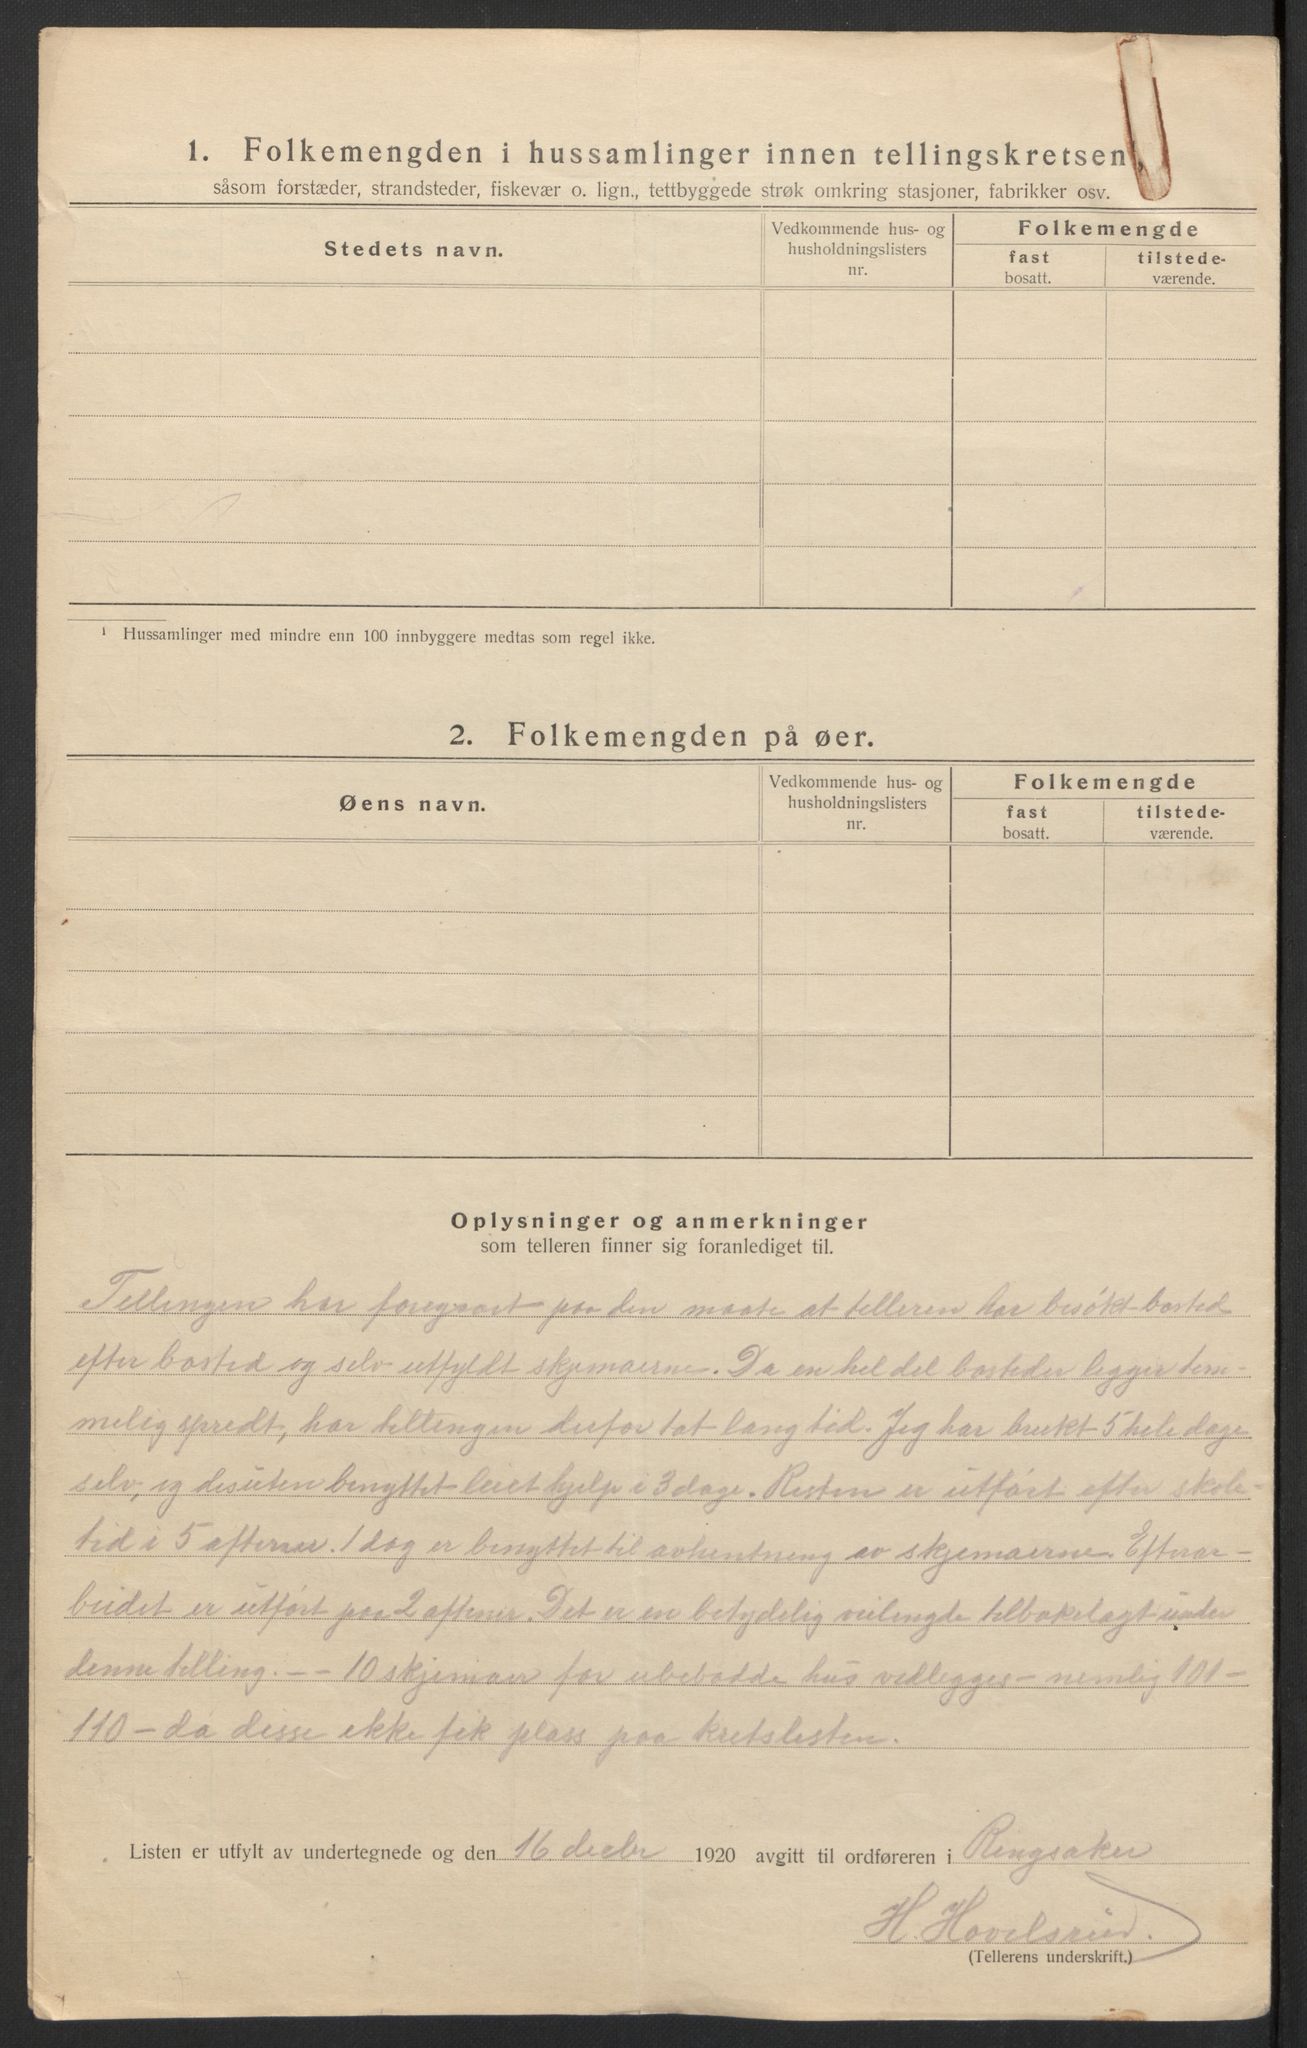 1. Folkemengden i hussamlinger innen tellingskretsen,
såsom forstæder, strandsteder, fiskevær o. lign., tettbyggede strøk omkring stasjoner, fabrikker osv.
Stedets navn.
Vedkommende hus- og
husholdningslisters
nr.
Folkemengde
fast
bosatt.
tilstede-
værende.
¹ Hussamlinger med mindre enn 100 innbyggere medtas som regel ikke.
2. Folkemengden på øer.
Øens navn.
Vedkommende hus- og
husholdningslisters
nr.
Folkemengde
fast
bosatt.
tilstede-
værende.
Oplysninger og anmerkninger
som telleren finner sig foranlediget til.
Tellingen har foregaart paa den maate at telleren har besøkt bosted
efter bosted og selv utfyldt skjemaerne. Da en hel del bosteder ligger tem-
melig spredt, har tellingen derfor tat lang tid. Jeg har brukt 5 hele dage
selv, og desuten benyttet leiet hjelp i 3 dage. Resten er utført efter skole-
tid i 5 aftener. 1 dag er benyttet til avhentning av skjemaerne. Efterar-
beidet er utført paa 2 aftener. Det er en betydelig veilengde tilbakelagt under
denne telling. – – 10 skjemaer for ubebodde hus vedlegges – nemlig 101 –
110 – da disse ikke fik plass paa kretslisten.
Listen er utfylt av undertegnede og den 16 decbr 1920 avgitt til ordføreren i Ringsaker
H. Hovelsrud.
(Tellerens underskrift.)